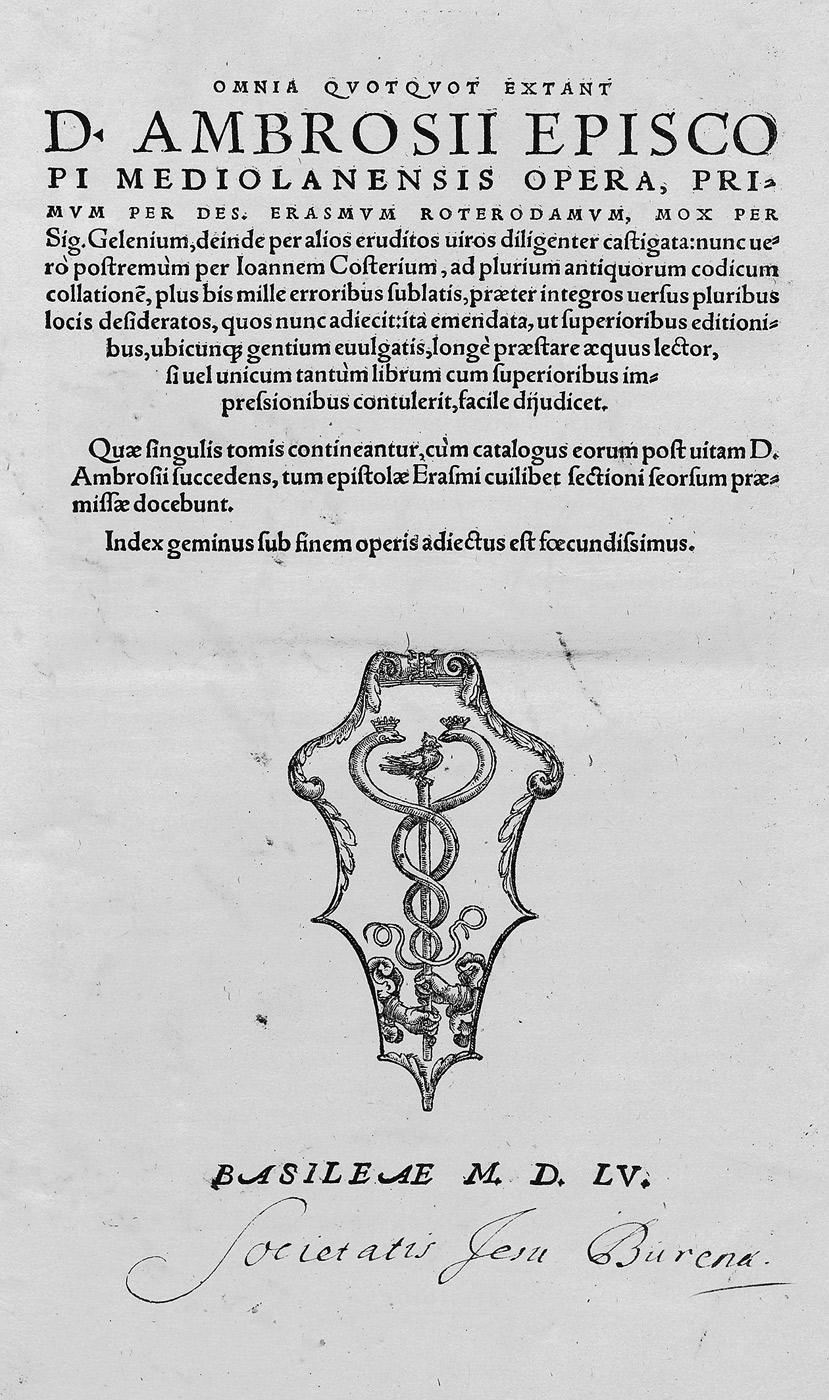 OMNIA QVOTQVOT EXTANT
D. AMBROSII EPISCO
PI MEDIOLANENSIS OPERA, PRI-
MVM PER DES. ERASMVM ROTERODAMVM, MOX PER
Sig. Gelenium, deinde per alios eruditos uiros diligenter caſtigata: nunc ue-
rò poſtremùm per Ioannem Coſterium, ad plurium antiquorum codicum
collationẽ, plus bis mille erroribus ſublatis, præter integros uerſus pluribus
locis deſideratos, quos nunc adiecit: ita emendata, ut ſuperioribus editioni-
bus, ubicunqꝫ gentium euulgatis, longè præſtare æquus lector,
ſi uel unicum tantùm librum cum ſuperioribus im-
preſsionibus contulerit, facile dijudicet.
Quæ ſingulis tomis contineantur, cùm catalogus eorum poſt uitam D.
Ambroſii ſuccedens, tum epiſtolæ Eraſmi cuilibet ſectioni ſeorſum præ-
miſſæ docebunt.
Index geminus ſub finem operis adiectus eſt fœcundiſsimus.
BASILEAE M. D. LV.
Societatis Jesu Burena.